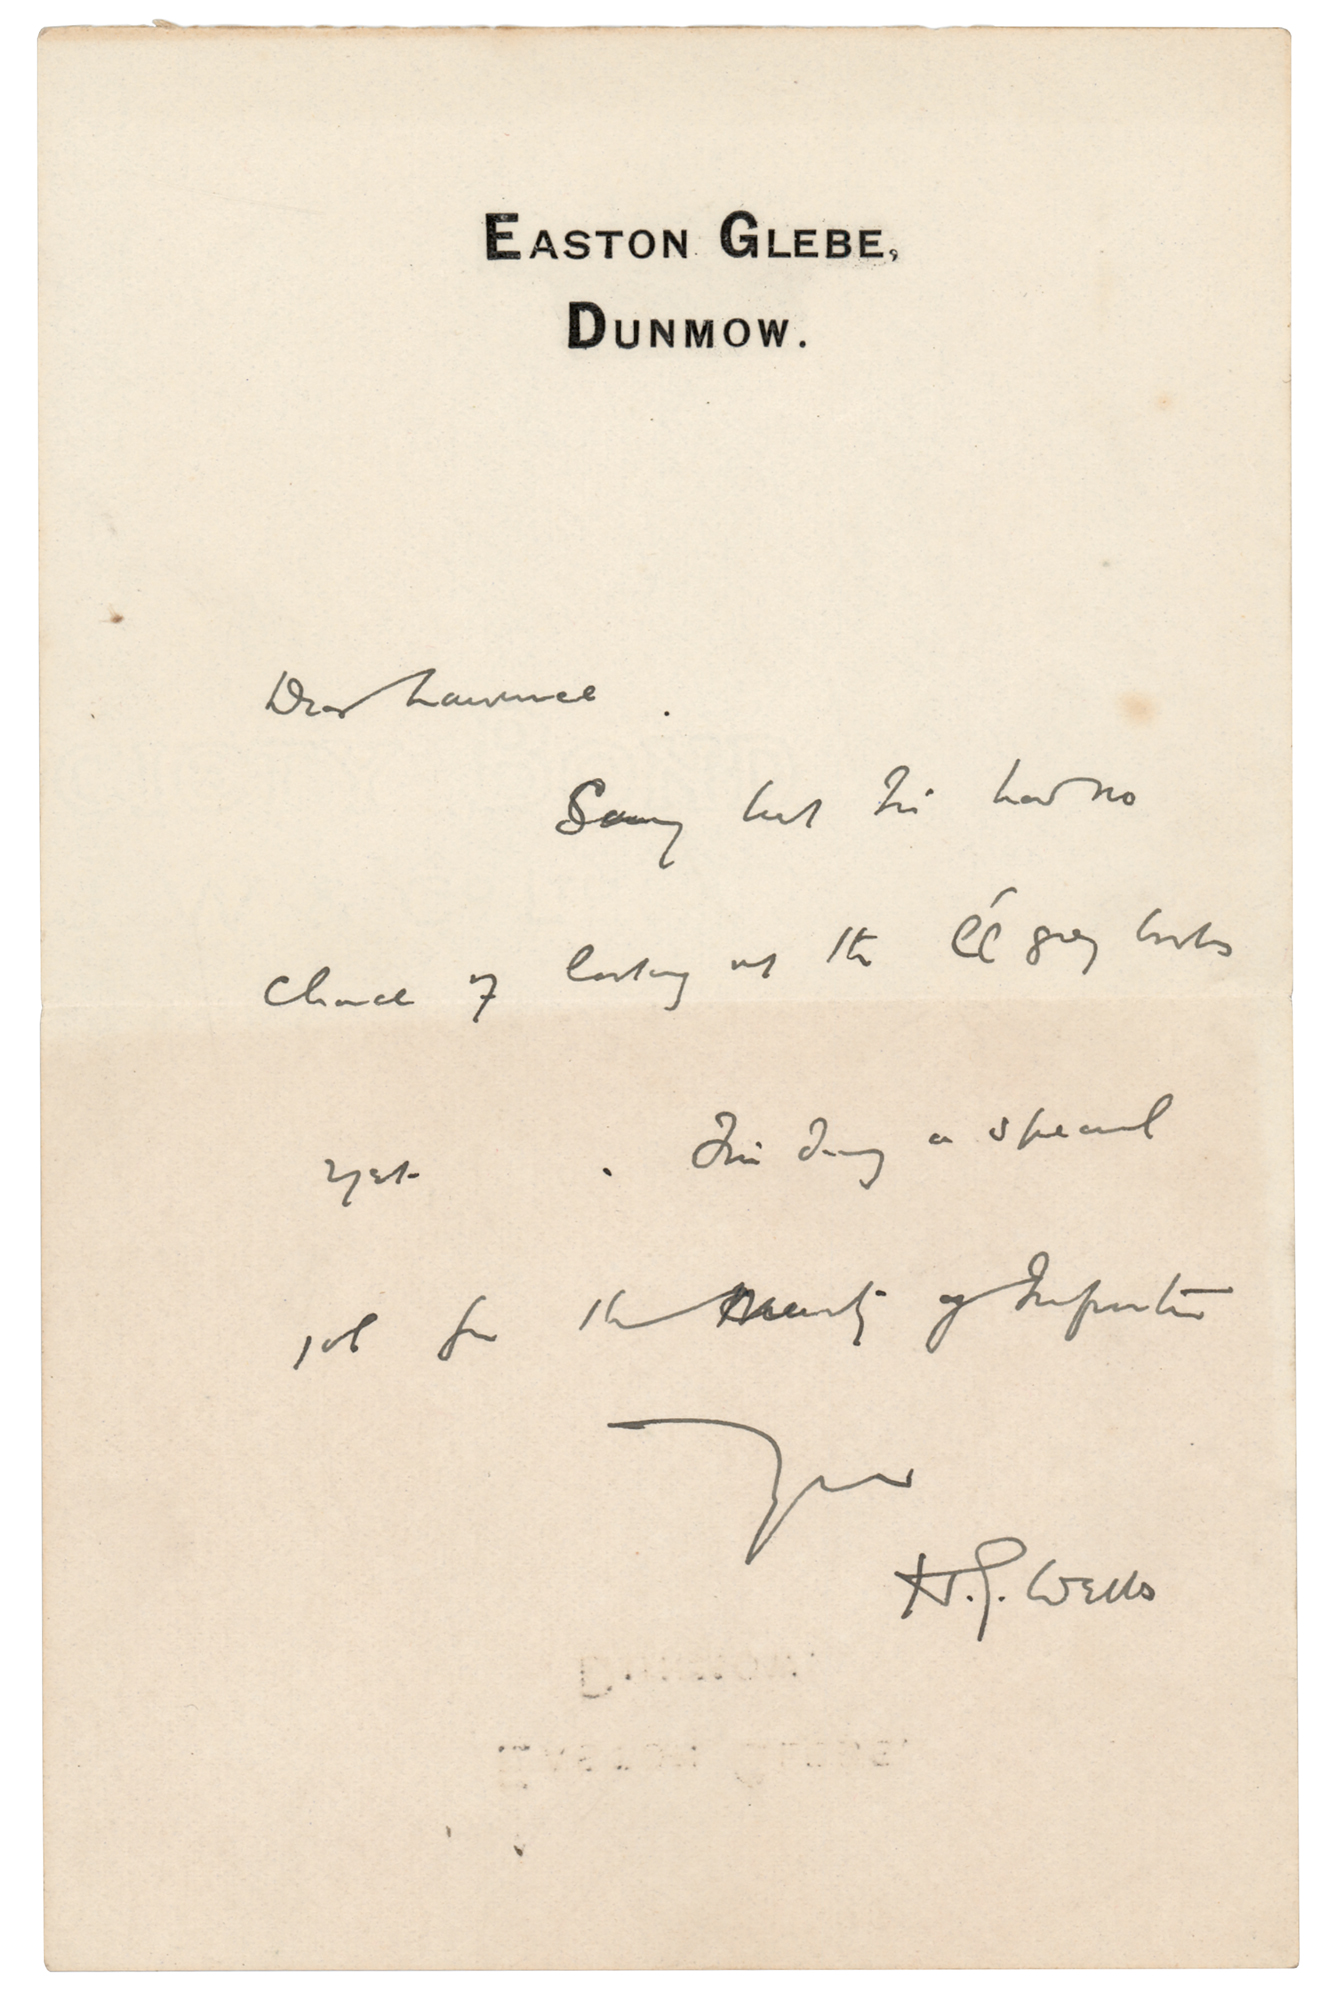 EASTON GLEBE,
DUNMOW.
Dear Lawrence
Sorry but I've had no
chance of looking at the grey books
yet. I'm doing a special
job for the Ministry of Information
Yours
H.G. Wells